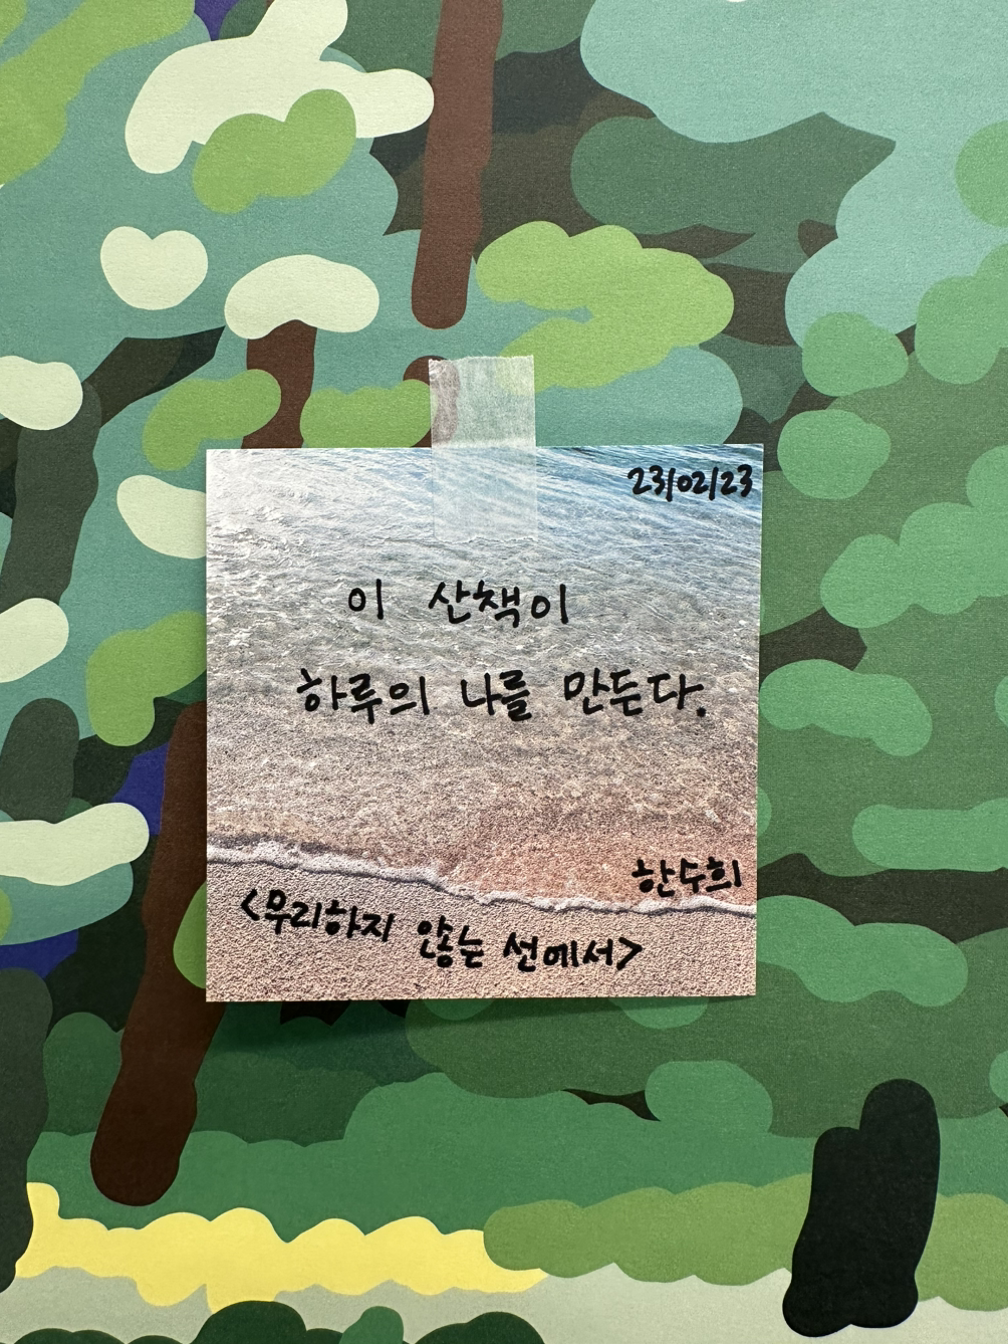 23/02/23
이 산책이
하루의 나를 만든다.
한수희
<무리하지 않는 선에서>